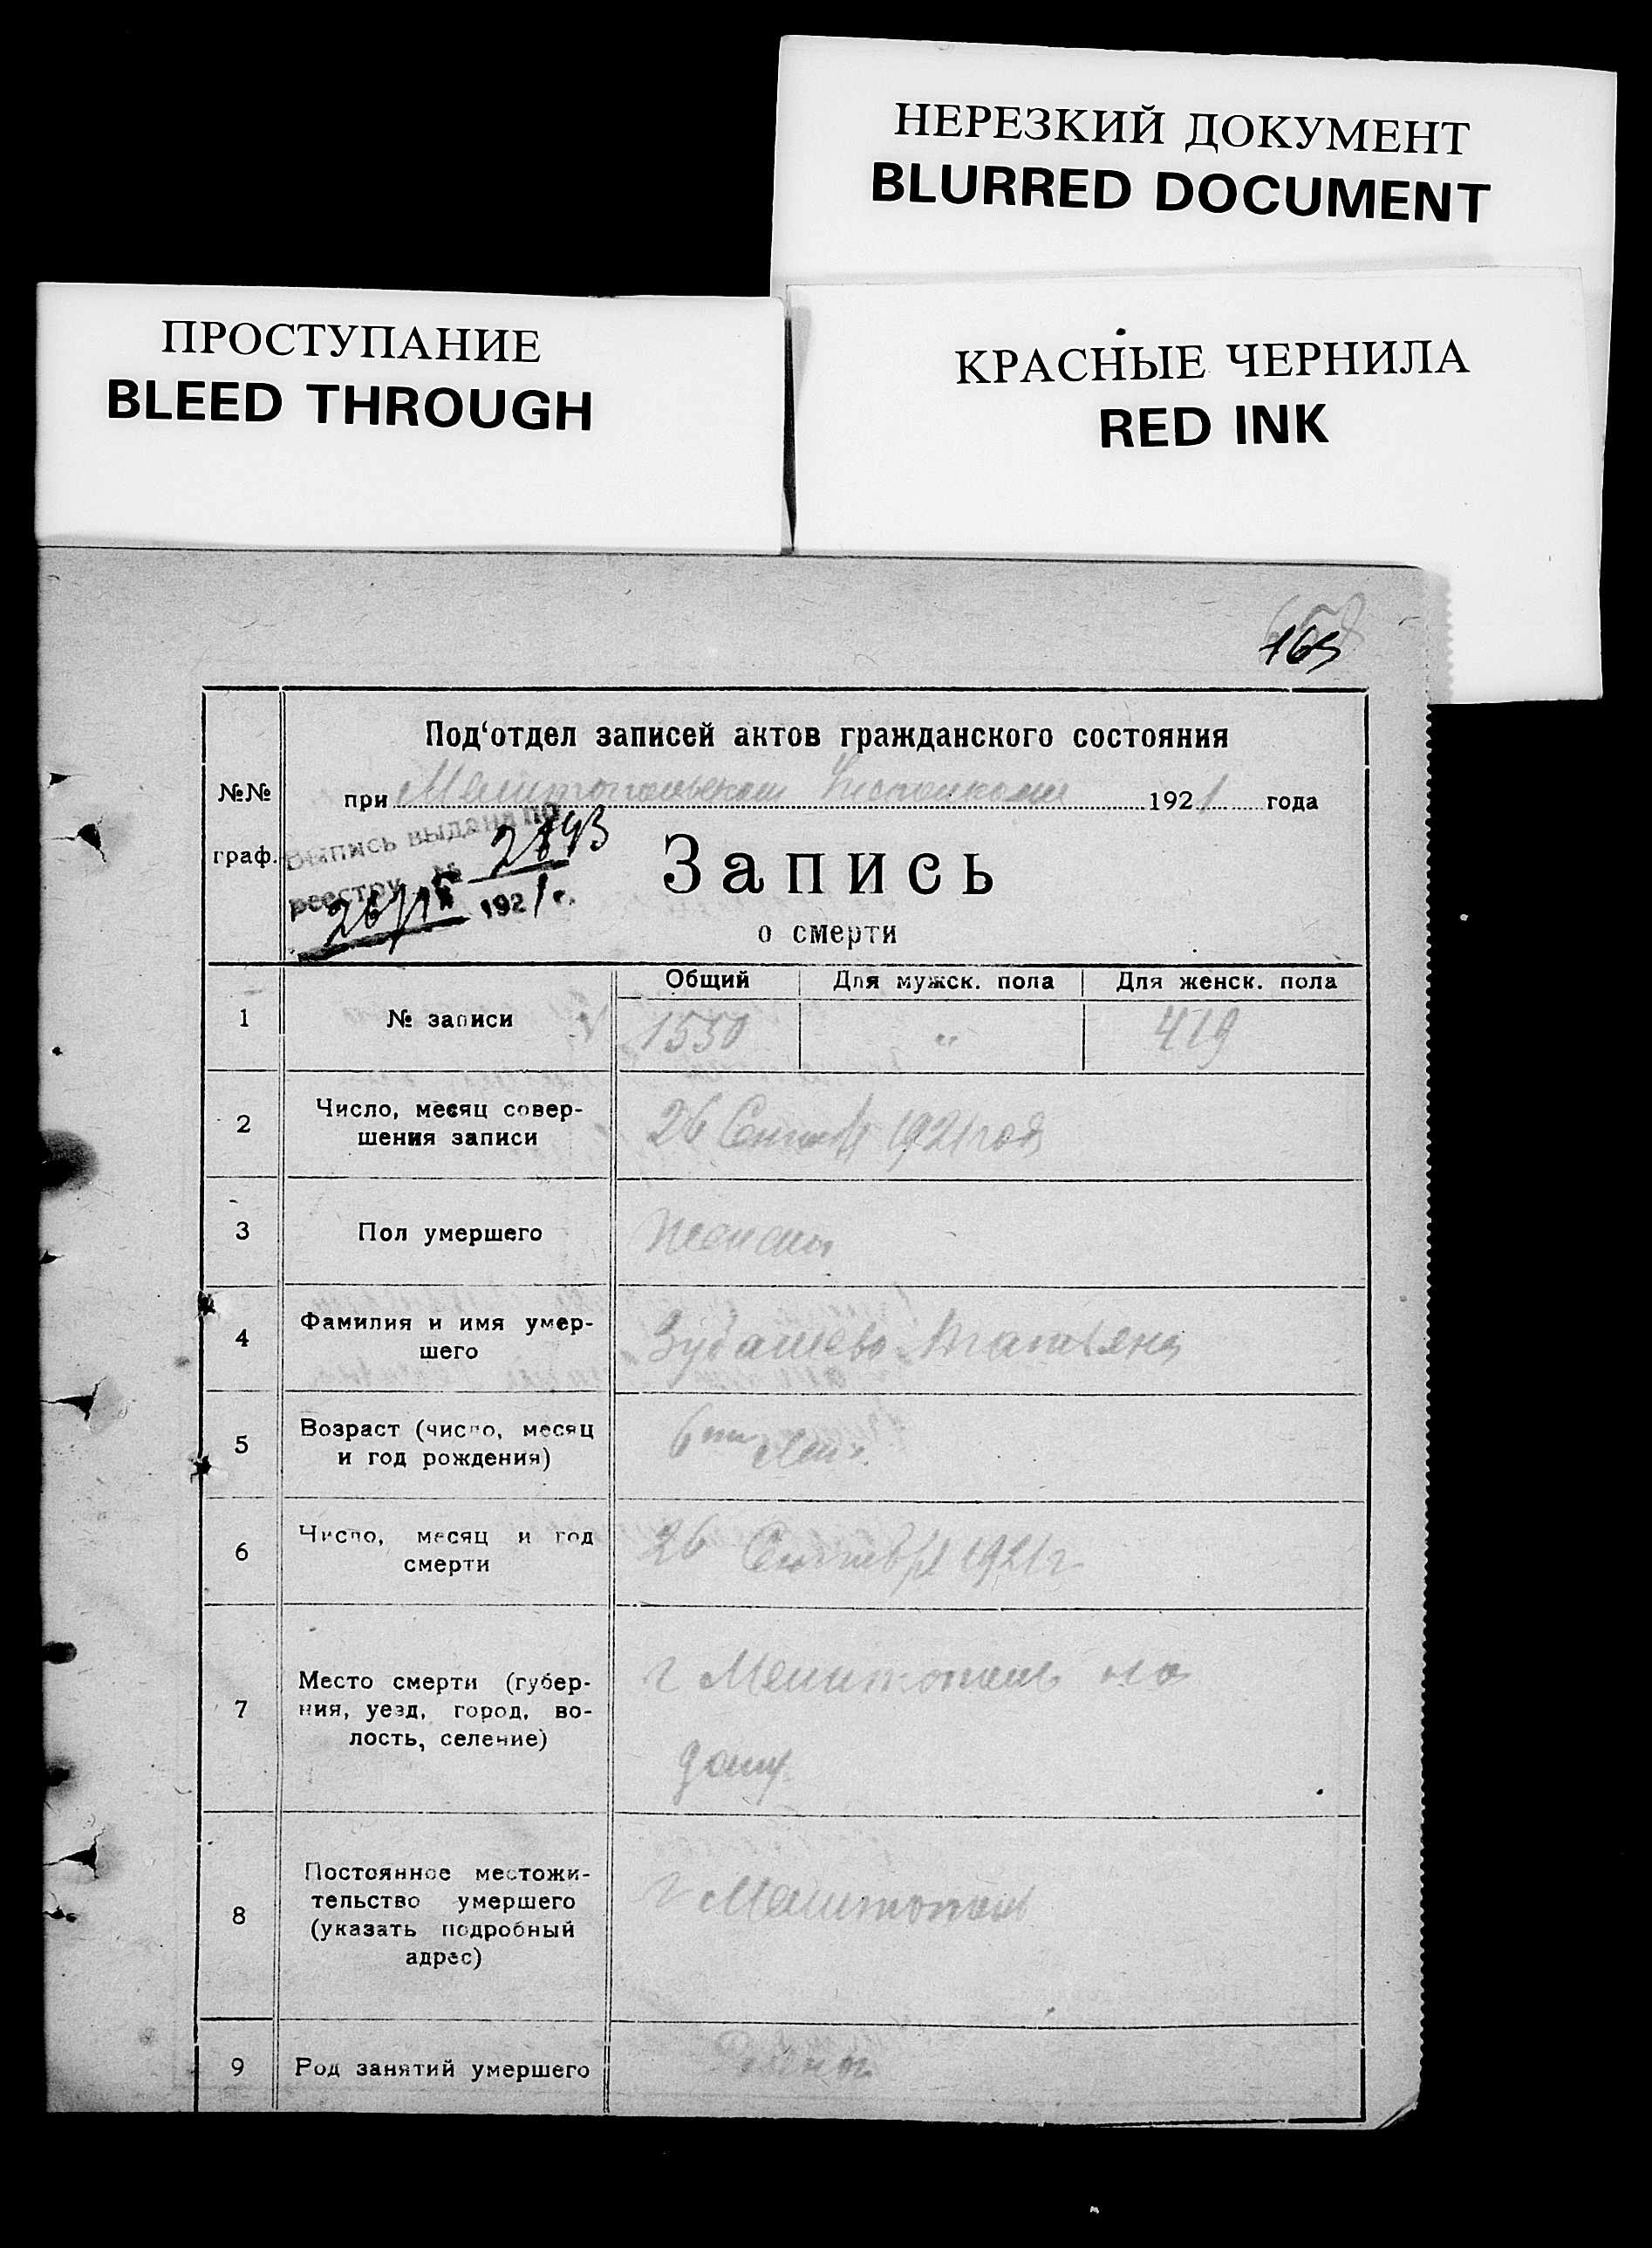 НЕРЕЗКИЙ ДОКУМЕНТ
BLURRED DOCUMENT
ПРОСТУПАНИЕ
BLEED THROUGH
КРАСНЫЕ ЧЕРНИЛА
RED INK
165
Под‘отдел записей актов гражданского состояния
№№
граф.
при Мелитопольском Исполкоме 1921 года
Выпись выдана по
реестру № 2893
1921 г.
Запись
о смерти
Общий Для мужск. пола Для женск. пола
1 № записи 1550 " 419
2 Число, месяц совер-
шения записи 26 1921 год
3 Пол умершего
4 Фамилия и имя умер-
шего Татьяна
5 Возраст (число, месяц
и год рождения) 6ти лет.
6 Число, месяц и год
смерти 26 Сентября 1921 г
7 Место смерти (губер-
ния, уезд, город, во-
лость, селение) г Мелитополь на
дому
8 Постоянное местожи-
тельство умершего
(указать подробный
адрес) г Мелитополь
9 Род занятий умершего